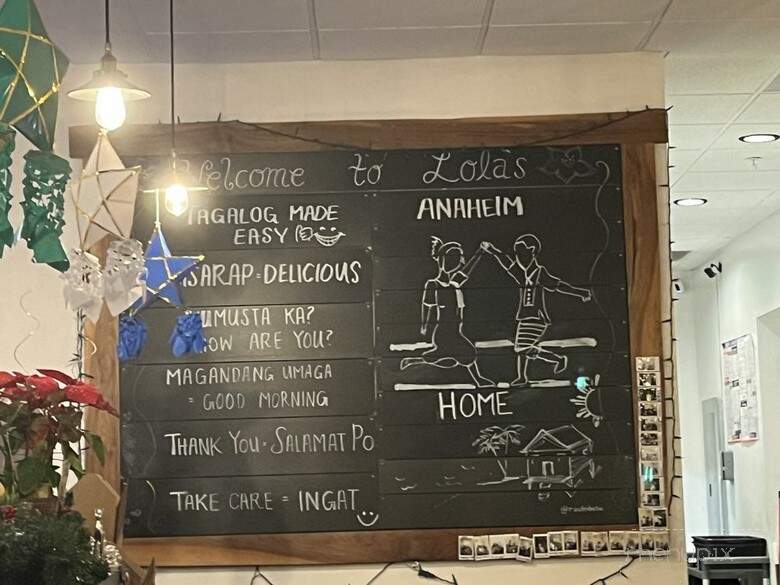 Welcome to Lola's
TAGALOG MADE
EASY
SARAP = DELICIOUS
KUMUSTA KA?
HOW ARE YOU?
MAGANDANG UMAGA
= GOOD MORNING
THANK YOU = SALAMAT PO
TAKE CARE = INGAT
ANAHEIM
HOME
menupix